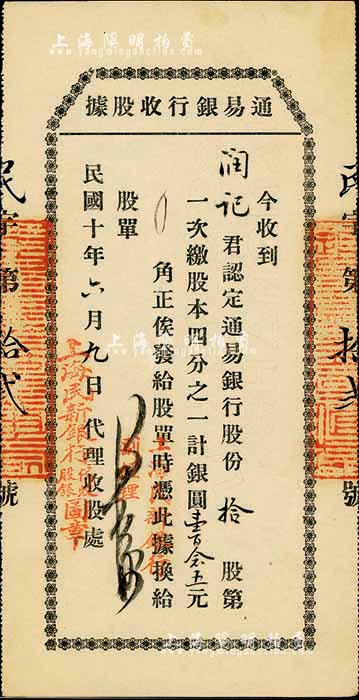 上海陽明拍賣
www.yangmingauction.com
通易銀行收股據
今收到
润记 君認定通易銀行股份 拾 股第
一次繳股本四分之一計銀圓壹百念五元
角正俟發給股單時憑此據換給
股單
民國十年六月九日 代理收股處
上海民新銀行
股銀圖章
民字第拾弍號
上海陽明拍賣
上海陽明拍賣